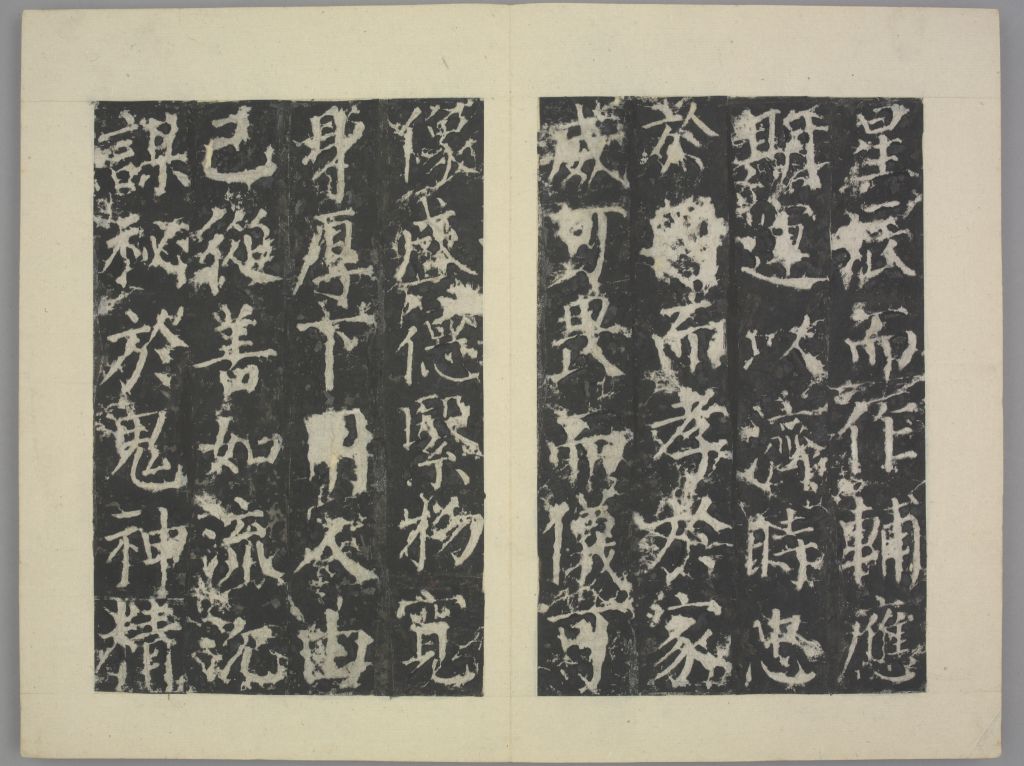 星辰而作輔應
期運以濟時忠
於國而孝於家
威可畏而儀可
像盛德繄物寬
身厚下用人由
己從善如流沉
謀秘於鬼神精